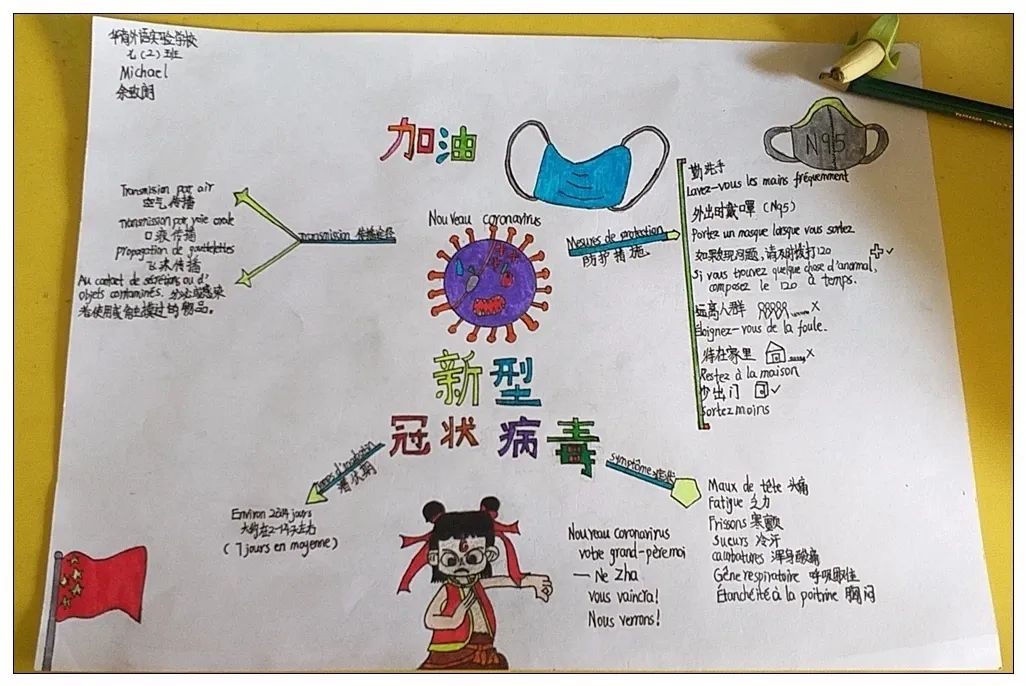 华南外语实验学校
七(2)班
Michael
余致朗
加油
N95
Transmission par air
空气传播
Transmission par voie orale
口液传播
Propagation de gouttelettes
飞沫传播
Au contact de sécrétions ou d'
objets contaminés. 分泌或感染
者使用或触摸过的物品。
Transmission 传播途径
Nouveau coronavirus
Mesures de protection
防护措施
勤洗手
Lavez-vous les mains fréquemment
外出时戴口罩(N95)
Portez un masque lorsque vous sortez
如果发现问题,请及时拨打120
Si vous trouvez quelque chose d'anormal,
composez le 120 à temps.
远离人群
Éloignez-vous de la foule.
待在家里
Restez à la maison
少出门
Sortez moins
新型
冠状病毒
潜伏期
Environ 2à14 jours
大约在2-14天左右
(7 jours en moyenne)
Symptôme 症状
Maux de tête 头痛
Fatigue 乏力
Frissons 寒颤
Sueurs 冷汗
courbatures 浑身酸痛
Gêne respiratoire 呼吸困难
Étanchéité à la poitrine 胸闷
Nouveau coronavirus
votre grand-père moi
— Ne Zha
vous vaincra!
Nous verrons!